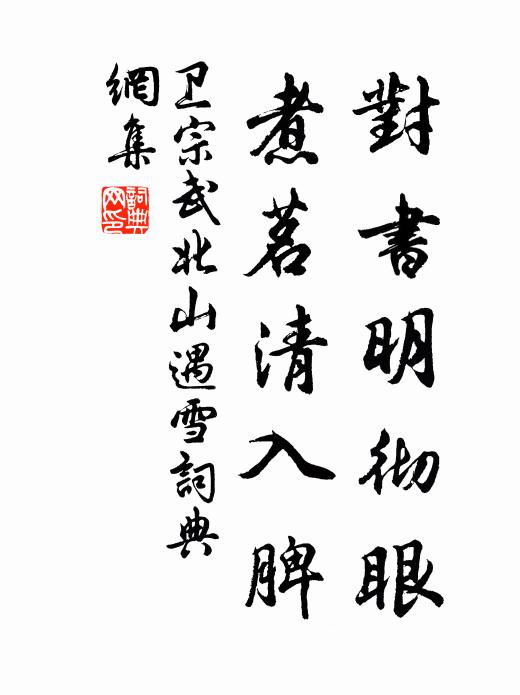 對書明彻眼
煮茗清入脾
卫宗武北山遇雪詞典
網集
詞典
网印